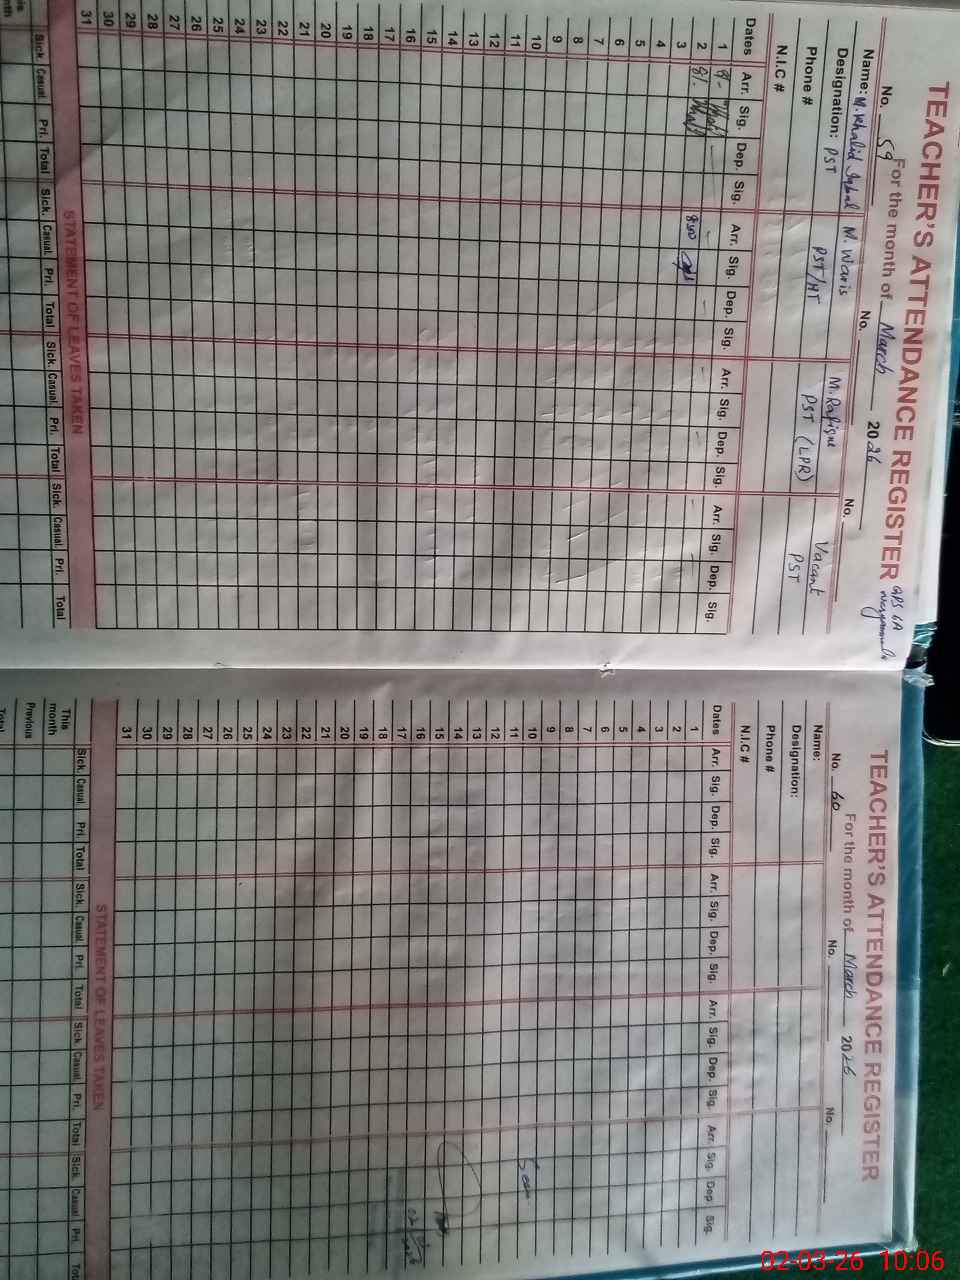 TEACHER'S ATTENDANCE REGISTER
No. 59 For the month of March 2026
No. No.
Name: M. Khalid Iqbal M. Waris M. Rafique Vacant
Designation: PST PST/HT PST (LPR) PST
Phone #
N.I.C #
Dates Arr. Sig. Dep. Sig. Arr. Sig. Dep. Sig. Arr. Sig. Dep. Sig. Arr. Sig. Dep. Sig.
1
2
3
4
5
6
7
8
9
10
11
12
13
14
15
16
17
18
19
20
21
22
23
24
25
26
27
28
29
30
31
STATEMENT OF LEAVES TAKEN
Sick. Casual. Pri. Total Sick. Casual. Pri. Total Sick. Casual. Pri. Total Sick. Casual. Pri. Total
TEACHER'S ATTENDANCE REGISTER
For the month of March 2026
No. 60 No. No.
Name:
Designation:
Phone #
N.I.C #
Dates Arr. Sig. Dep. Sig. Arr. Sig. Dep. Sig. Arr. Sig. Dep. Sig. Arr. Sig. Dep. Sig.
1
2
3
4
5
6
7
8
9
10
11 Seen
12
13
14
15
16
17
18
19
20
21
22
23
24
25
26
27
28
29
30
31
STATEMENT OF LEAVES TAKEN
Sick. Casual. Pri. Total Sick. Casual. Pri. Total Sick. Casual. Pri. Total Sick. Casual. Pri. Total
This month
Previous
Total
02-03-26 10:06